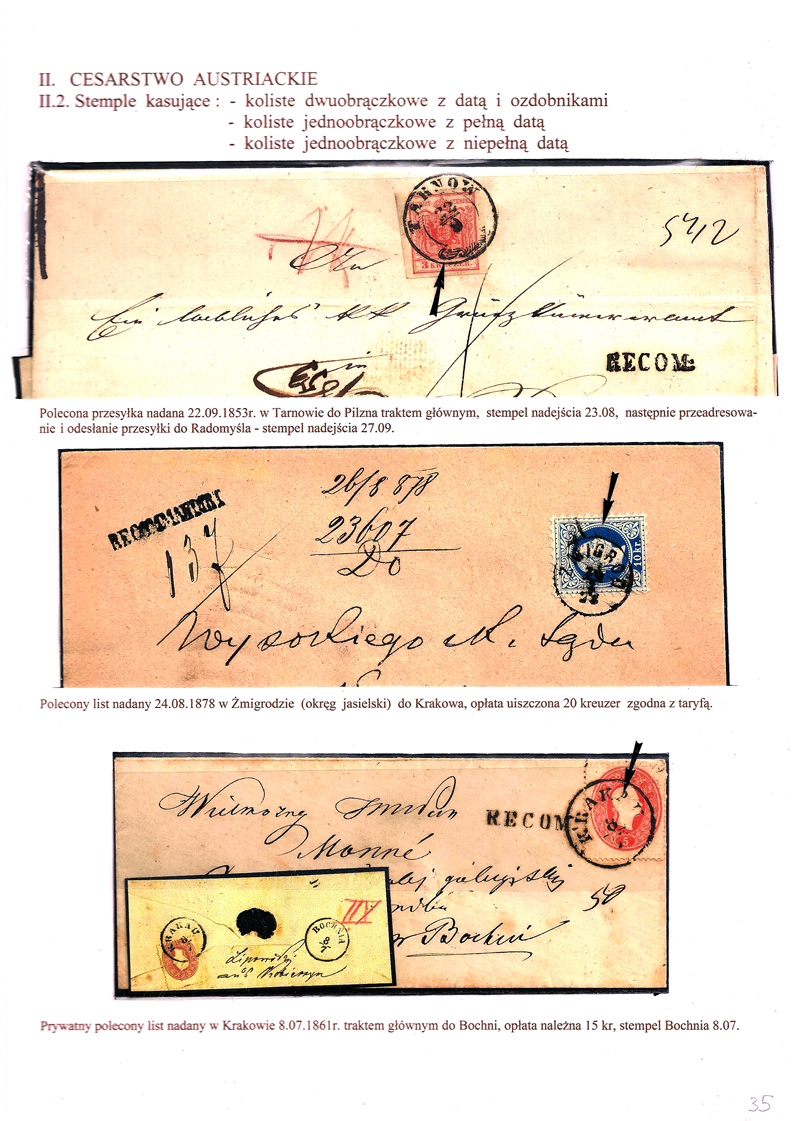 II. CESARSTWO AUSTRIACKIE
II.2. Stemple kasujące : - koliste dwuobrączkowe z datą i ozdobnikami
- koliste jednoobrączkowe z pełną datą
- koliste jednoobrączkowe z niepełną datą
TARNOW
22/9
3 KREUZER
5412
An
Ein löbliches KK
in
RECOM:
Polecona przesyłka nadana 22.09.1853r. w Tarnowie do Pilzna traktem głównym, stempel nadejścia 23.08, następnie przeadresowa-
nie i odesłanie przesyłki do Radomyśla - stempel nadejścia 27.09.
26/8 878
23607
Do
137
10 kr.
Wysokiego
Polecony list nadany 24.08.1878 w Żmigrodzie (okręg jasielski) do Krakowa, opłata uiszczona 20 kreuzer zgodna z taryfą.
Wielmożny
RECOM
KRAKAU
Monné
50
w Bochni
KRAKAU
8/7
BOCHNIA
8/7
Prywatny polecony list nadany w Krakowie 8.07.1861r. traktem głównym do Bochni, opłata należna 15 kr, stempel Bochnia 8.07.
35